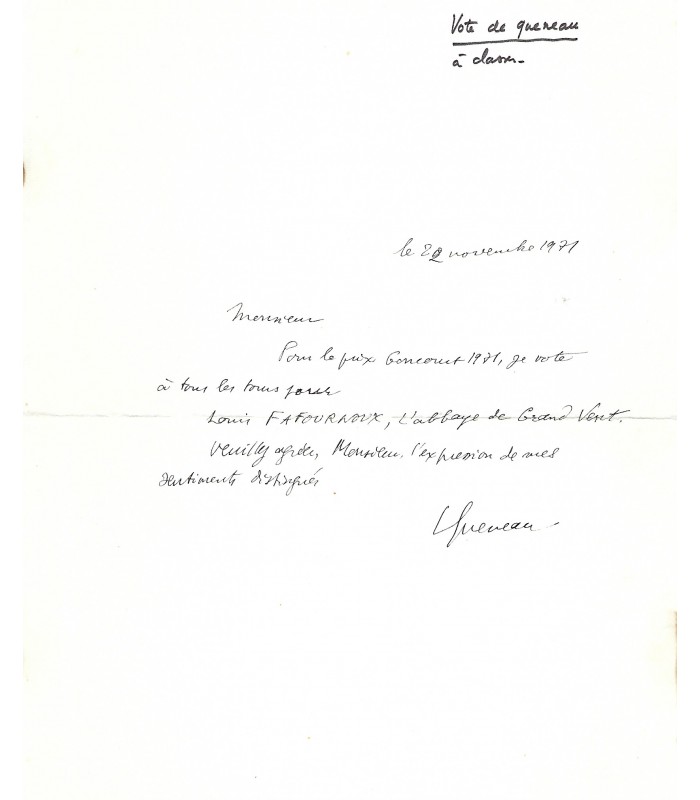 Vote de queneau
à classer –
le 22 novembre 1971
Monsieur
Pour le prix Goncourt 1971, je vote
à tous les tours pour
Louis FAFOURNOUX, L'abbaye de Grand Vent.
Veuillez agréer, Monsieur, l'expression de mes
sentiments distingués
Queneau